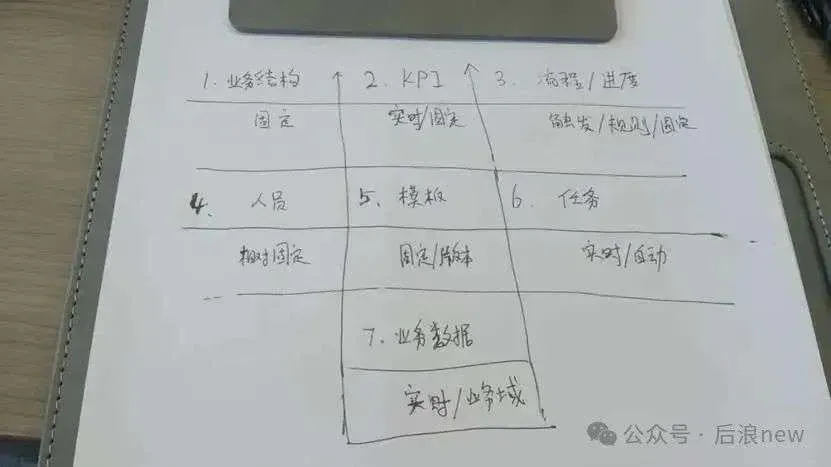 1. 业务结构 2. KPI 3. 流程/进度
固定 实时/固定 触发/规则/固定
4. 人员 5、模板 6. 任务
相对固定 固定/版本 实时/自动
7. 业务数据
实时/业务域
公众号·后浪new